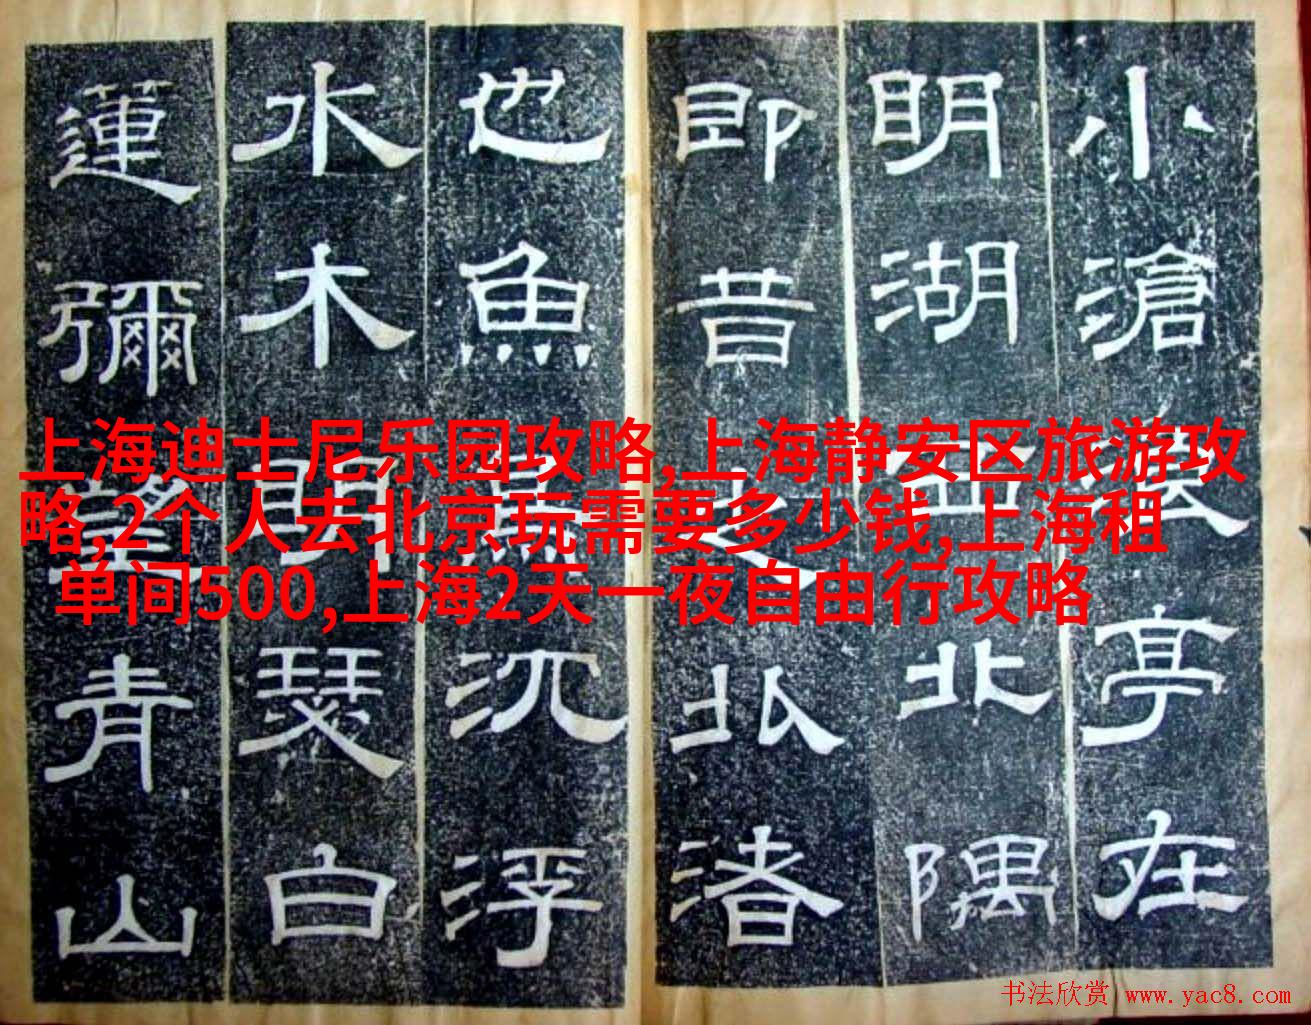 小滄浪亭在
明湖西北隅
即昔之北渚
也魚鳥沉浮
水木明瑟白
蓮彌望青山
上海迪士尼乐园攻略,上海静安区旅游攻
略,2个人去北京玩需要多少钱,上海租
单间500,上海2天一夜自由行攻略
书法欣赏 www.yac8.com